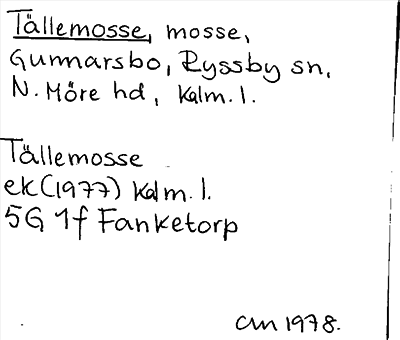 Tällemosse, mosse,
Gunnarsbo, Ryssby sn,
N. Möre hd, Kalm. l.
Tällemosse
ek (1977) Kalm. l.
5G 1f Fanketorp
CM 1978.